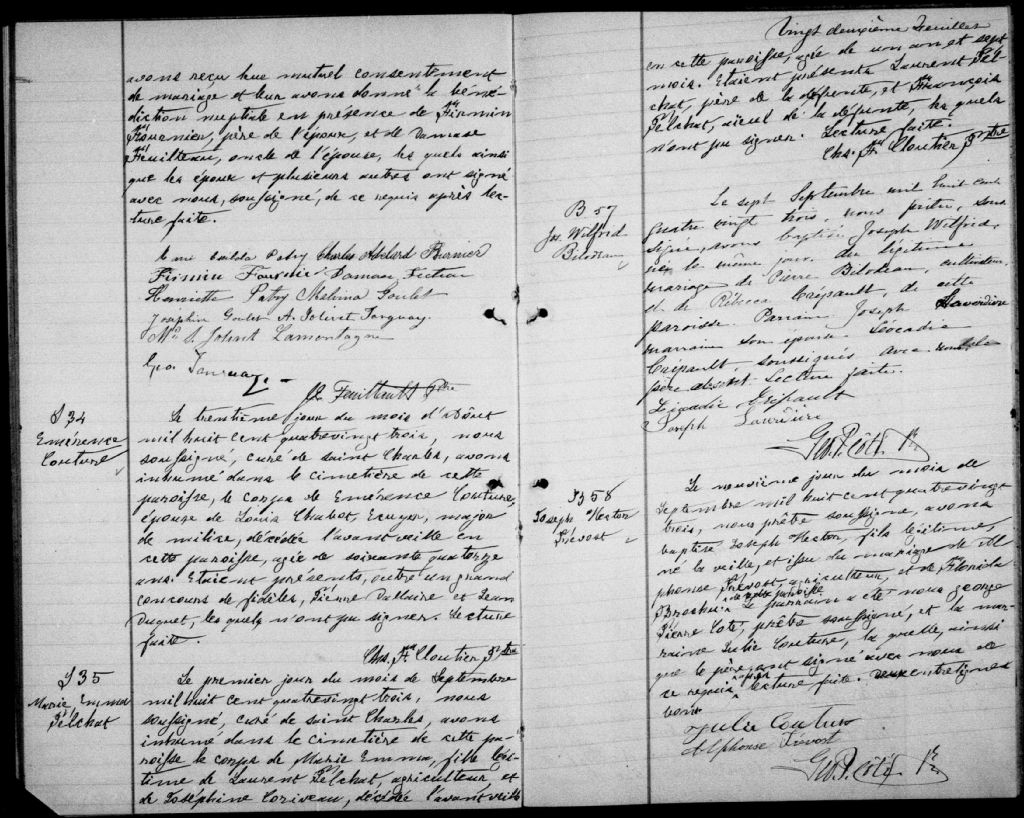 avons reçu leur mutuel consentement
de mariage et leur avons donné la béné-
diction nuptiale en présence de Firmin
Fournier, père de l'époux, et de Damase
Feuilteau, oncle de l'épouse, les quels ainsi
que les époux et plusieurs autres ont signé
avec nous, soussigné, de ce requis après lec-
ture faite.
Patry Charles Abélard Bernier
Firmin Fournier Damase
Henriette Patry Melvina Goulet
Josephine Goulet A.
S. Johnt Lamontagne
Geo. Tanguay
Feuiltault Ptre
S 34
Emérence
Couture
Le trentième jour du mois d'Août
mil huit cent quatrevingt trois, nous
soussigné, curé de saint Charles, avons
inhumé dans le cimetière de cette
paroisse, le corps de Emérence Couture,
épouse de Louis Chabot, Ecuyer, major
de milice, décédée l'avant veille en
cette paroisse, agée de soixante quatorze
ans. Etaient présents, outre un grand
concours de fidèles, Pierre Vallaire et Jean
Duquet, les quels n'ont pu signer. Lecture
faite.
Chs. Fs Cloutier Ptre
S 35
Marie Emma
Pélchat
Le premier jour du mois de Septembre
mil huit cent quatrevingt trois, nous
soussigné, curé de saint Charles, avons
inhumé dans le cimetière de cette pa-
roisse le corps de Marie Emma, fille légi-
time de Laurent Pélchat, agriculteur et
de Joséphine Coriveau, décédée l'avant veille
Vingt deuxième Feuillet
en cette paroisse, agée de un an et sept
mois. Etaient présents Laurent Pél
chat, père de la défunte, et François
Pélchat, aïeul de la défunte, les quels
n'ont pu signer. Lecture faite.
Chs. Fs Cloutier Ptre
B 57
Jos. Wilfrid
Bilodeau
Le sept Septembre mil huit cent
quatre vingt trois, nous prêtre, sous
signé, avons baptisé Joseph Wilfrid,
né le même jour, du légitime
mariage de Pierre Bilodeau, cultivateur
et de Rébecca Crépault, de cette
paroisse. Parrain Joseph Laverdière
marraine son épouse Léocadie
Crépault, soussignés avec nous. Le
père absent. Lecture faite.
Léocadie Crépault
Joseph
Geo. P. Côté Ptr
B 58
Joseph Hector
Prévost
Le neuvième jour du mois de
Septembre mil huit cent quatrevingt
trois, nous prêtre soussigné, avons
baptisé Joseph Hector, fils légitime,
né la veille, et issu du mariage de Al
phonse Prévost, agriculteur, et de Florida
Brochu de cette paroisse. Le parrain a été nous George
Pierre Coté, prêtre soussigné, et la mar-
raine Julie Couture, la quelle, ainsi
que le père ont signé avec nous de
ce requis après lecture faite.
bons
Julie Couture
Alphonse Prévost
Geo. P. Côté Ptr